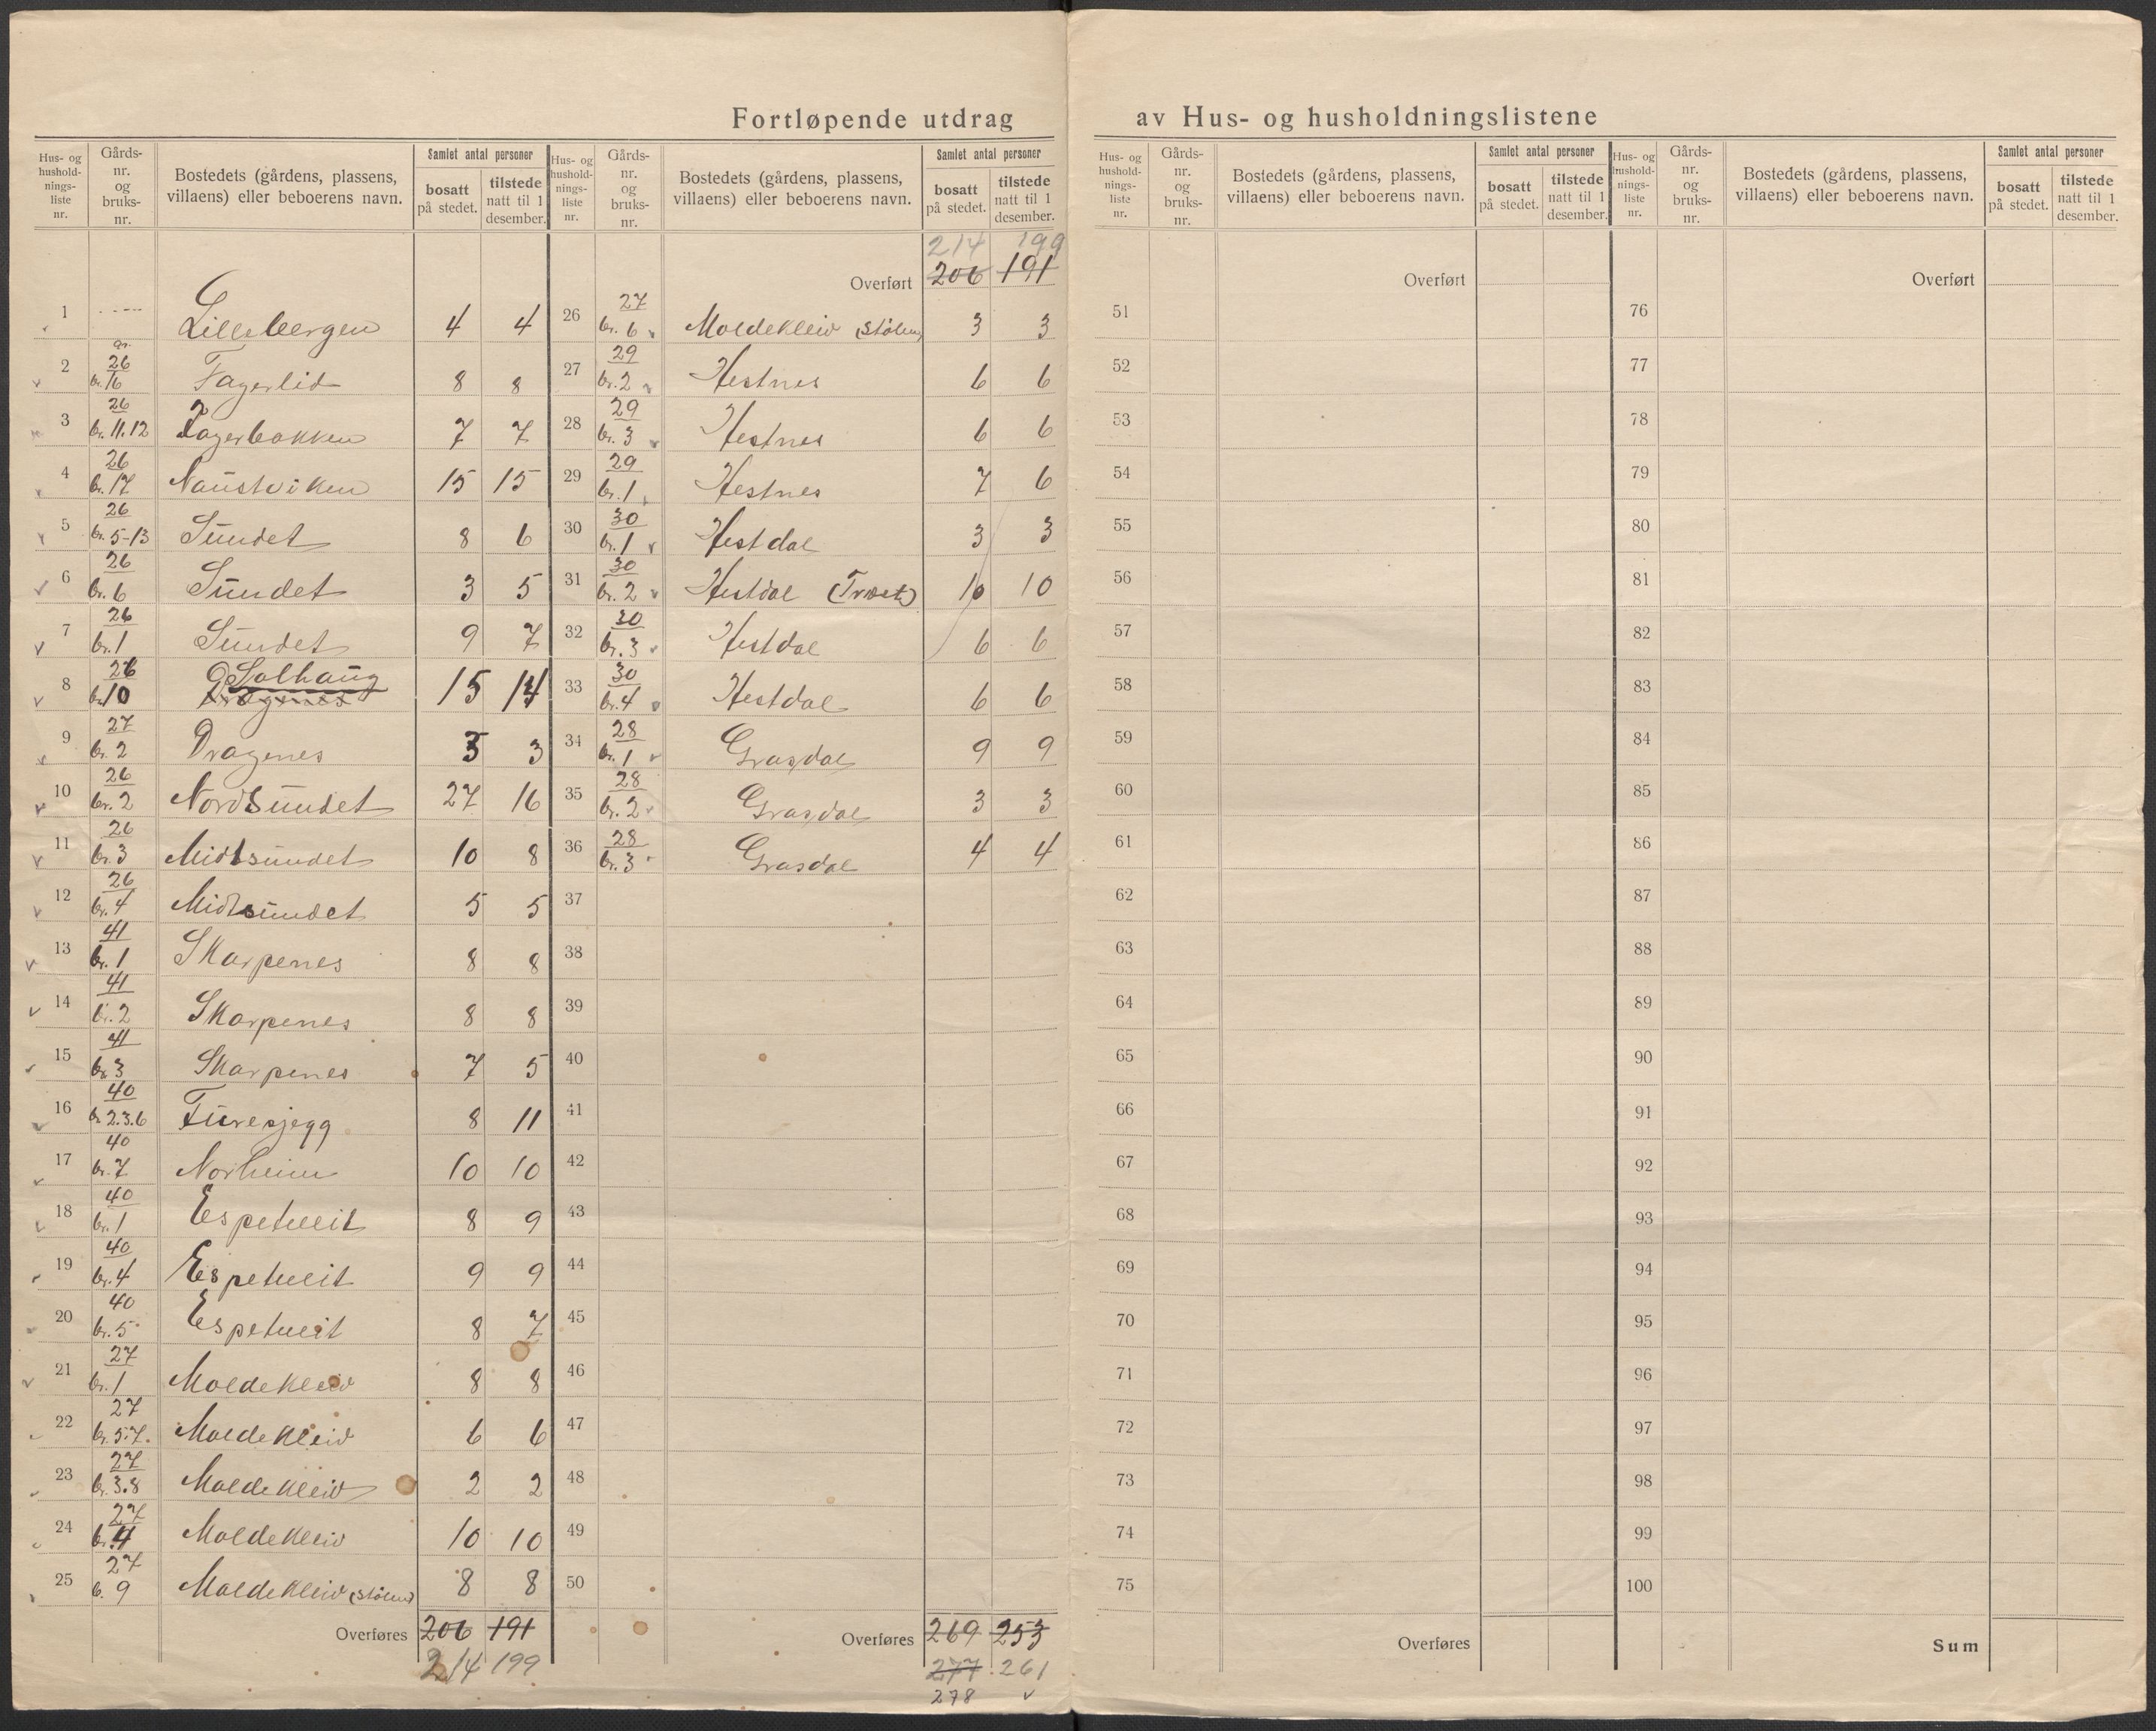 Fortløpende utdrag av Hus- og husholdningslistene
Hus- og hushold-nings-liste nr. | Gårds-nr. og bruks-nr. | Bostedets (gårdens, plassens, villaens) eller beboerens navn. | Samlet antal personer | bosatt på stedet. | tilstede natt til 1 desember.
1 ---- Lillebergen 4 4
2 gr. 26 br. 16 Fagerlid 8 8
3 26 br. 11.12 Fagerbakken 7 7
4 26 br. 17 Naustviken 15 15
5 26 br. 5-13 Sundet 8 6
6 26 br. 6 Sundet 3 5
7 26 br. 1 Sundet 9 7
8 26 br. 10 Solhaug Dragenes 15 14
9 27 br. 2 Dragenes 3
10 26 br. 2 Nordsundet 27 16
11 26 br. 3 Midtsundet 10 8
12 26 br. 4 Midtsundet 5 5
13 41 br. 1 Skarpenes 8 8
14 41 br. 2 Skarpenes 8 8
15 41 br. 3 Skarpenes 7 5
16 40 br. 2.3.6 Turesjegg 8 11
17 40 br. 7 Norheim 10 10
18 40 br. 1 Espetveit 8 9
19 40 br. 4 Espetveit 9 9
20 40 br. 5 Espetveit 8 7
21 27 br. 1 Moldekleiv 8 8
22 27 br. 5.7. Moldekleiv 6 6
23 27 br. 3.8 Moldekleiv 2 2
24 27 br. 4 Moldekleiv 10 10
25 27 b. 9 Moldekleiv (Stølen) 8 8
Overføres 206 191
214 199
Hus- og hushold-nings-liste nr. | Gårds-nr. og bruks-nr. | Bostedets (gårdens, plassens, villaens) eller beboerens navn. | Samlet antal personer | bosatt på stedet. | tilstede natt til 1 desember.
214 199
Overført 206 191
26 27 br. 6 Moldekleiv (Stølen) 3 3
27 29 br. 2 Hestnes 6 6
28 29 br. 3 Hestnes 6 6
29 29 br. 1 Hestnes 7 6
30 30 br. 1 Hestdal 3 3
31 30 br. 2 Hestdal 10 10
32 30 br. 3 Hestdal 6 6
33 30 br. 4 Hestdal 6 6
34 28 br. 1 Grasdal 9 9
35 28 br. 2 Grasdal 3 3
36 28 br. 3 Grasdal 4 4
37
38
39
40
41
42
43
44
45
46
47
48
49
50
Overføres 269 253
277 261
278
Hus- og hushold-nings-liste nr. | Gårds-nr. og bruks-nr. | Bostedets (gårdens, plassens, villaens) eller beboerens navn. | Samlet antal personer | bosatt på stedet. | tilstede natt til 1 desember.
Overført
51
52
53
54
55
56
57
58
59
60
61
62
63
64
65
66
67
68
69
70
71
72
73
74
75
Overføres
Hus- og hushold-nings-liste nr. | Gårds-nr. og bruks-nr. | Bostedets (gårdens, plassens, villaens) eller beboerens navn. | Samlet antal personer | bosatt på stedet. | tilstede natt til 1 desember.
Overført
76
77
78
79
80
81
82
83
84
85
86
87
88
89
90
91
92
93
94
95
96
97
98
99
100
Sum